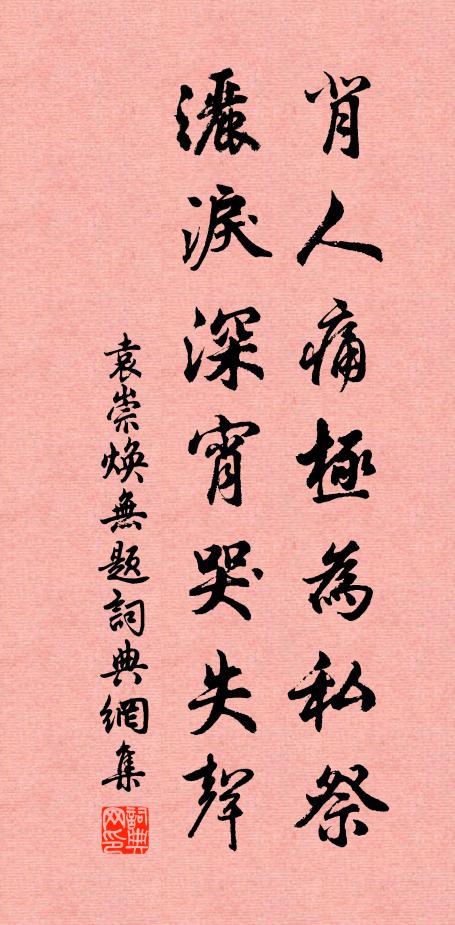 背人痛極為私祭
灑淚深宵哭失聲
袁崇煥無題詞典網集
詞典网印